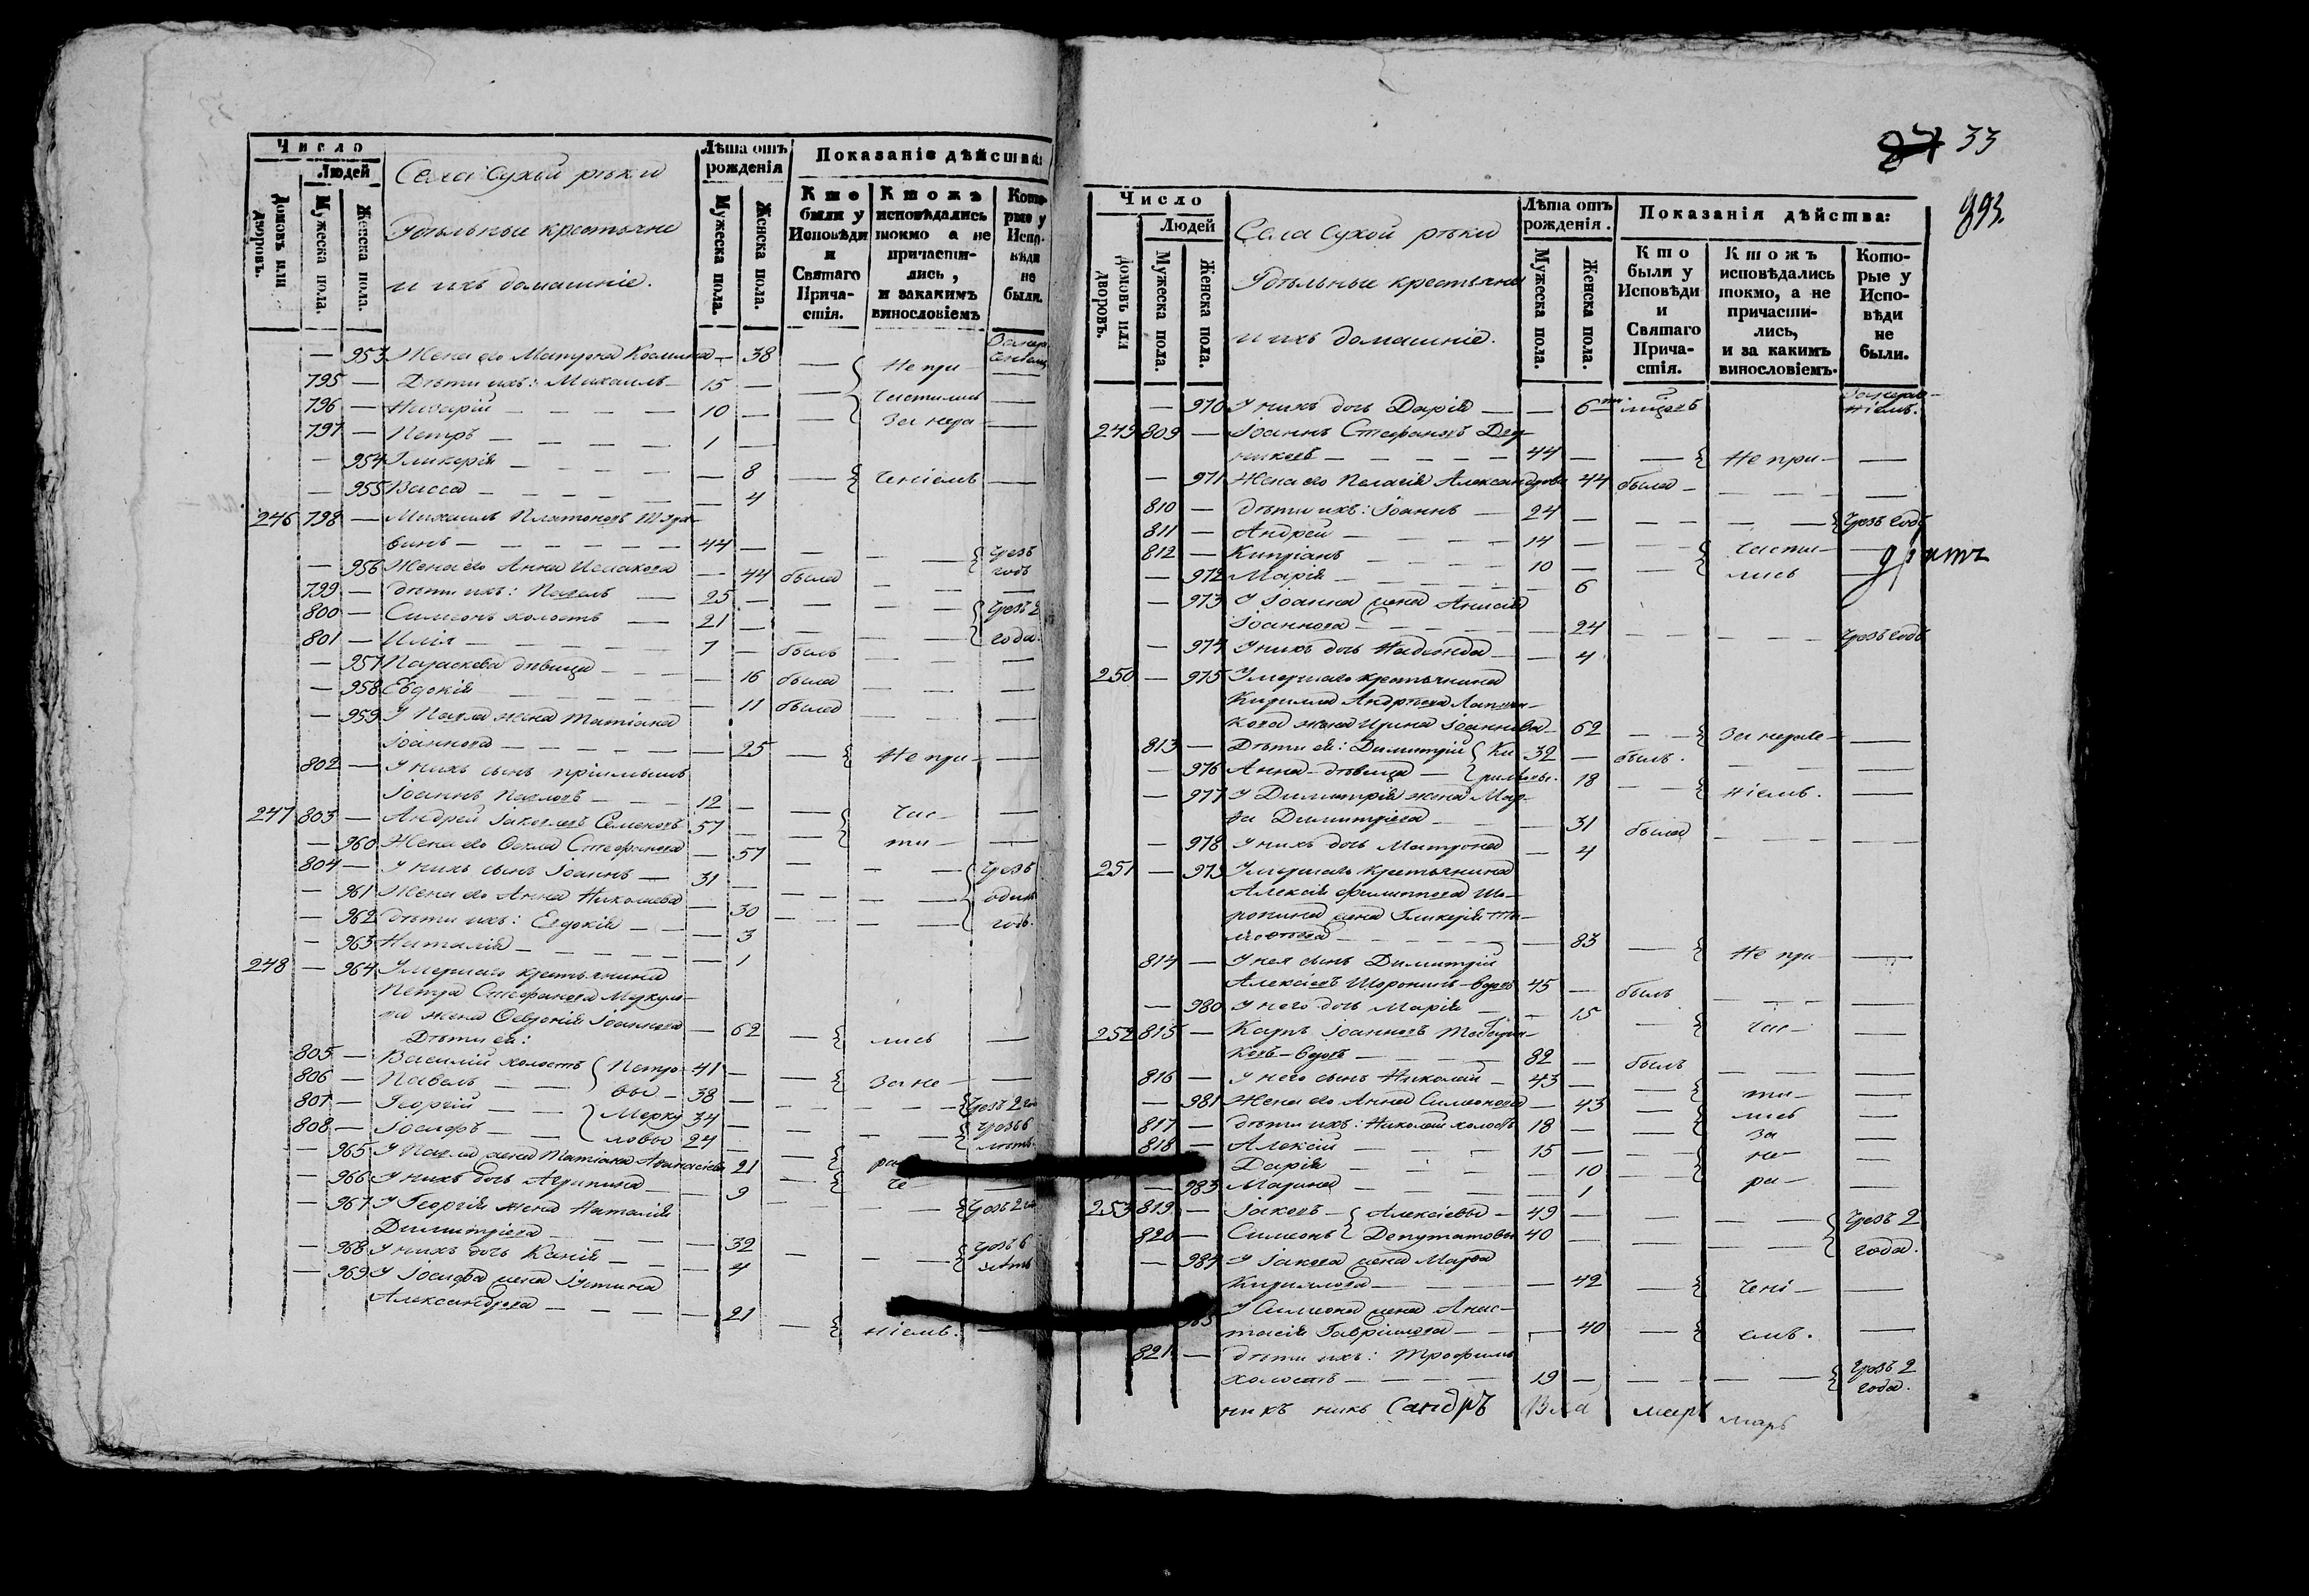 Число
Людей
Домовъ или дворовъ.
Мужеска пола.
Женска пола.
Села Сухой рѣки
Удѣльные крестьяне
и ихъ домашніе.
Лѣта отъ рожденія
Мужеска пола.
Женска пола.
Показаніе дѣйства:
Кто были у Исповѣди и Святаго Причастія.
Ктожъ исповѣдались токмо а не причастились, и закакимъ винословіемъ
Которые у Исповѣди не были.
— 953 Жена его Матрона Козмина — 38 — Не при —
795 — Дѣти ихъ: Михаилъ — 15 — — частились —
796 — Назарій — 10 — — За нера —
797 — Петръ — 1 —
— 954 Гликерія — 8 — ченіемъ —
— 955 Васса — 4
246 798 — Михаилъ Платоновъ
44 — — — Чрезъ
— 956 Жена его Анна Исакова — 44 была — годъ
799 — дѣти ихъ: Павелъ — 25 — — — Чрезъ 2
800 — Симеонъ холостъ — 21 — — — года.
801 — Илія — 7 — былъ — —
— 957 Параскева дѣвица — 16 была — —
— 958 Евдокія — 11 была — —
— 959 У Павла жена Татіана
Іоаннова — 25 — Не при —
802 — У нихъ сынъ пріимышъ
Іоаннъ Павловъ — 12 — — Час —
247 803 — Андрей Іаковлевъ Семеновъ 57 — — ти —
— 960 Жена его Ѳекла Стефанова — 57 — — Чрезъ
804 — У нихъ сынъ Іоаннъ — 31 — — — одинъ
— 961 Жена его Анна Николаева — 30 — — годъ.
— 962 дѣти ихъ: Евдокія — 3
— 963 Наталія — 1
248 — 964 Умершаго крестьянина
Петра Стефанова Меркуло
ва жена Ѳевронія Іоаннова — 62 — лись —
Дѣти ея:
805 — Василій холостъ Петро 41 — — За не —
806 — Павелъ — вы — 38 — — — Чрезъ 2 го
807 — Георгій — Мерку 34 — — — Чрезъ 6
808 — Іосифъ — ловы 24 — — — лѣтъ.
— 965 У Павла жена Татіана Аѳанасіева 21 — ра
— 966 У нихъ дочь Агрипина — 9 — че —
— 967 У Георгія жена Наталія
Димитріева — 32 — — Чрезъ 2
— 968 У нихъ дочь Ксенія — 4
— 969 У Іосифа жена Іустина — Чрезъ 6 лѣтъ
Александрова — 21 — ніемъ. —
33
893.
Число
Людей
Домовъ или дворовъ.
Мужеска пола.
Женска пола.
Села Сухой рѣки
Удѣльные крестьяне
и ихъ домашніе.
Лѣта отъ рожденія.
Мужеска пола.
Женска пола.
Показанія дѣйства:
Кто были у Исповѣди и Святаго Причастія.
Ктожъ исповѣдались токмо, а не причастились, и за какимъ винословіемъ.
Которые у Исповѣди не были.
— 970 У нихъ дочь Дарія — — 6
249 809 — Іоаннъ Стефановъ
44 — — Не при —
— 971 Жена его Пелагія Александрова 44 была — —
810 — дѣти ихъ: Іоаннъ — 24 — — — Чрезъ годъ
811 — Андрей — 14 — — Части —
812 — Кипріанъ — 10 — — лись
— 972 Марія — 6
— 973 У Іоанна жена Анисія
Іоаннова — 24 — — Чрезъ годъ
— 974 У нихъ дочь Надежда — 4
250 — 975 Умершаго крестьянина
Кирилла Андреева
жена Ирина Іоаннова — 62 — За нераче —
813 — Дѣти ея: Димитрій Ки 32 — былъ. — —
— 976 Анна дѣвица — риловы. 18 — ніемъ. —
— 977 У Димитрія жена Мар
ѳа Димитріева — 31 была — —
— 978 У нихъ дочь Матрона — 4
251 — 979 Умершаго крестьянина
Алексія Филиппова Шо
ронина жена Гликерія Ти
моѳеева — 83 — Не при —
814 — У нея сынъ Димитрій
Алексіевъ Шоронинъ вдовъ 45 — былъ — —
— 980 У него дочь Марія — 15 — Час —
252 815 — Карпъ Іоанновъ
вдовъ — 82 — былъ — —
816 — У него сынъ Николай — 43 — — ти —
— 981 Жена его Анна Симеонова — 43 — лись —
817 — дѣти ихъ: Николай холостъ 18 — — За —
818 — Алексій — 15 — — не —
Дарія — 10 — ра —
— 983 Марина — 1
253 819 — Іаковъ Алексіевы — 49 — — — Чрезъ 2
820 — Симеонъ Депутатовы 40 — — — года.
— 984 У Іакова жена Марѳа
Кириллова — 42 — чені —
У Симеона жена Анас
тасія Гавріилова — 40 — емъ. —
821 — дѣти ихъ: Трофимъ
холостъ — 19 — — — Чрезъ 2 года.
никъ никъ Сандръ